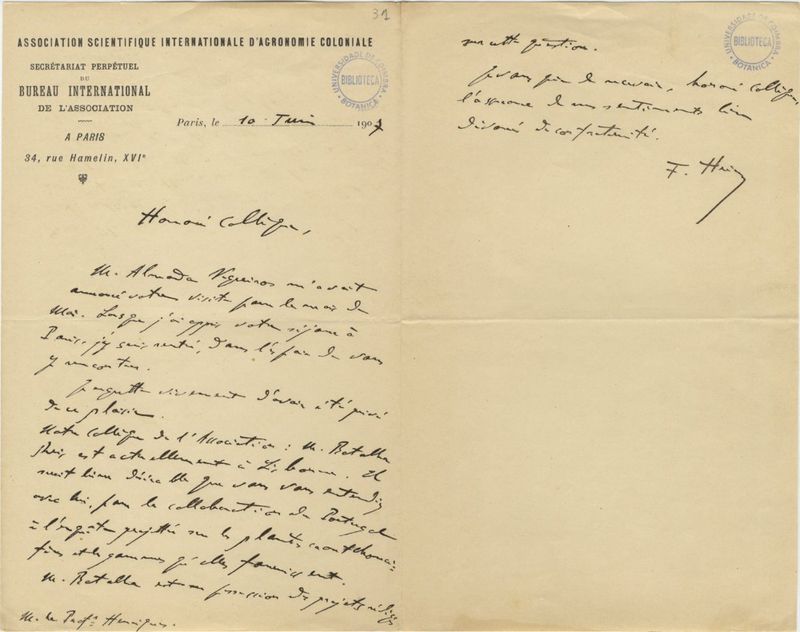 31
ASSOCIATION SCIENTIFIQUE INTERNATIONALE D'AGRONOMIE COLONIALE
SECRÉTARIAT PERPÉTUEL
DU
BUREAU INTERNATIONAL
DE L'ASSOCIATION
A PARIS
34, rue Hamelin, XVIe
UNIVERSIDADE DE COIMBRA
BIBLIOTECA
BOTANICA
Paris, le 10 Juin 1907
Honoré Collègue,
M. Almada Negreiros m'avait
annoncé votre visite pour le mois de
Mai. Lorsque j'ai appris votre séjour à
Paris, j'y suis rentré, dans l'espoir de vous
y rencontrer.
Je regrette vivement d'avoir été privé
de ce plaisir.
Notre Collègue de l'Association : M. Batalha
Reis, est actuellement à Lisbonne. Il
serait bien désirable que vous vous entendiez
avec lui, pour la collaboration du Portugal
à l'enquête projettée sur les plantes caoutchouci-
fères et les gommes qu'elles fournissent.
M. Batalha est en possession des projets
M. le Profr Henriques.
UNIVERSIDADE DE COIMBRA
BIBLIOTECA
BOTANICA
sur cette question.
Je vous prie de recevoir, honoré collègue,
l'assurance de mes sentiments bien
dévoués de confraternité.
F. Heim